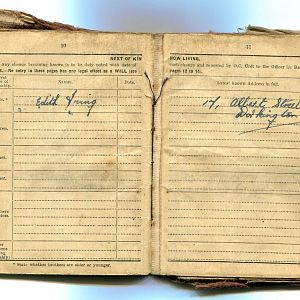 10
NEXT OF KIN
Any change becoming known is to be duly noted with date of
—No entry in these pages has any legal effect as a WILL (see
Names.
Date.
Edith Irving
* State whether brothers are older or younger.
11
NOW LIVING.
such change and reported by O.C. Unit to the Officer i/c Re
pages 12 to 15).
known Address in full.
17, Albert Street
Workington